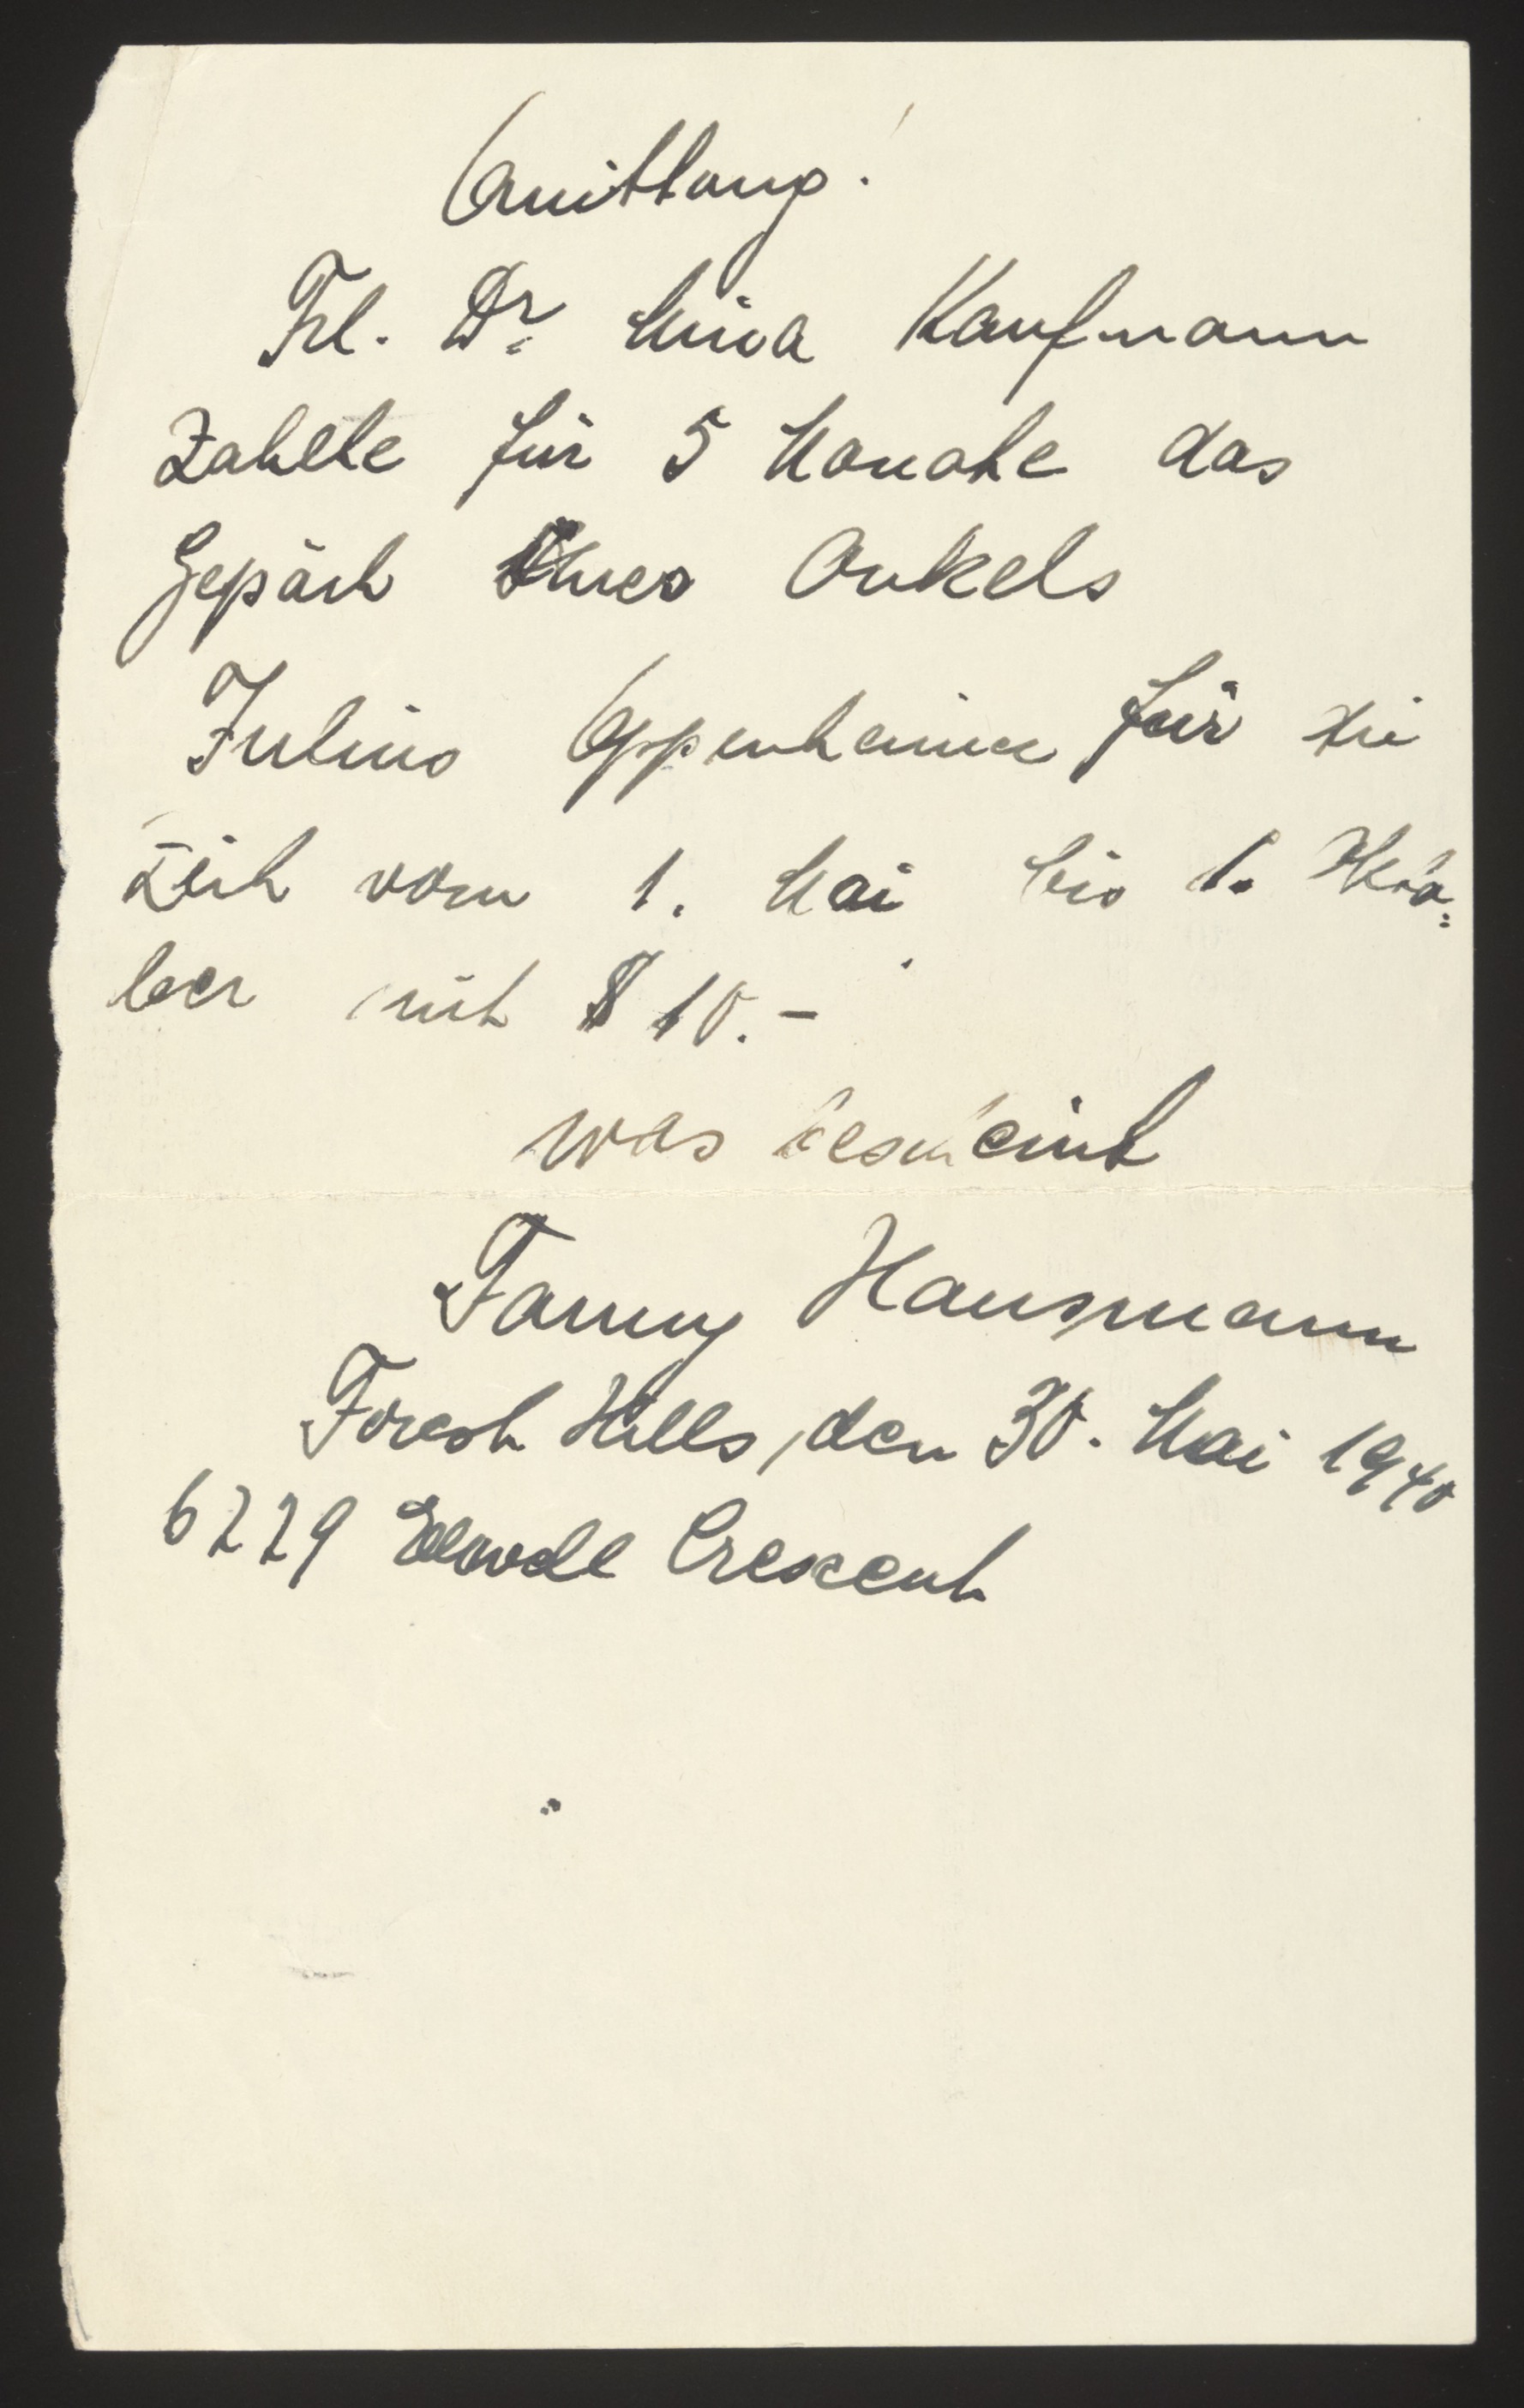 Quittung!
Frl. Dr. Mina Kaufmann
zahlte für 5 Monate das
Gepäck Ihres Onkels
Julius Oppenheimer für die
Zeit vom 1. Mai bis 1. Okto=
ber mit $ 10.-
was bescheint
Fanny Hausmann
Forest Hills, den 30. Mai 1940
6229 Crescent